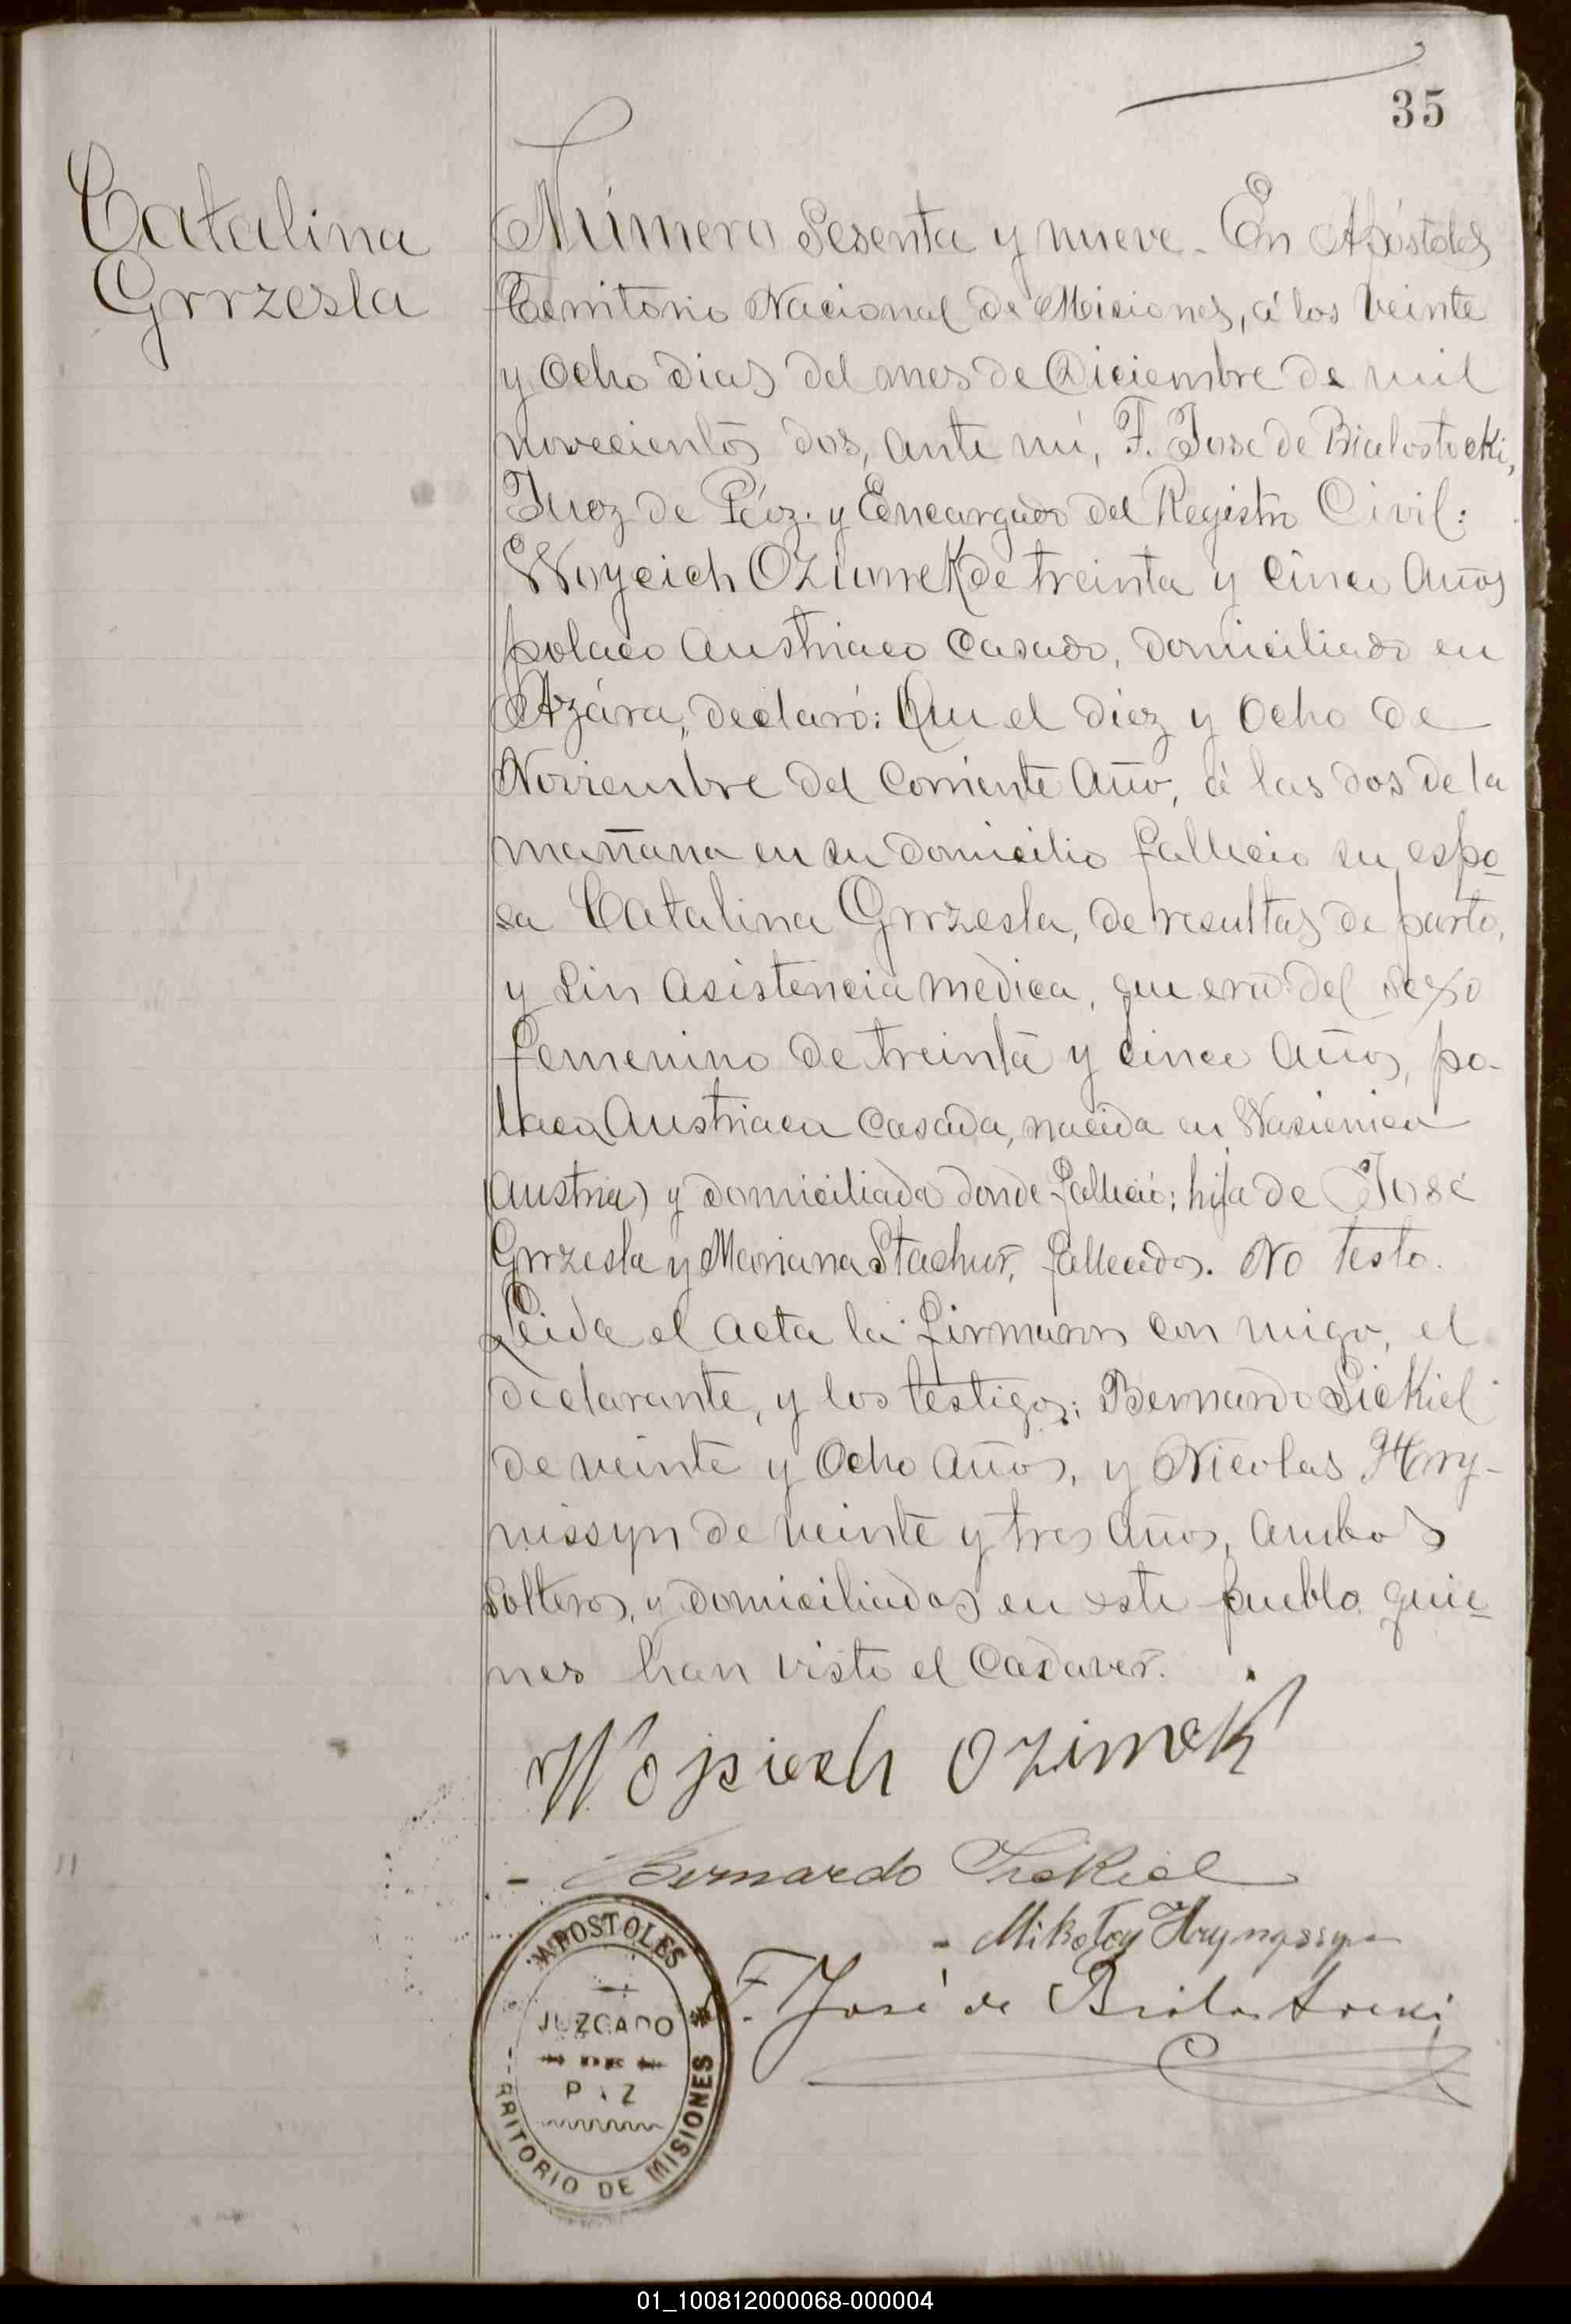 35
Catalina
Grrzesla
Número Sesenta y nueve. En Apóstoles
Territorio Nacional de Misiones, á los veinte
y Ocho dias del mes de Diciembre de mil
novecientos dos, ante mi, F. Jose de Bialostocki,
Juez de Páz y Encargado del Registro Civil:
Woyciech Oziomek de treinta y cinco Años
polaco Austriaco casado, domiciliado en
Azára, declaró: Que el diez y Ocho de
Noviembre del corriente Año, á las dos de la
mañana en su domicilio fallecio su espo
sa Catalina Grrzesla, de resultas de parto,
y sin asistencia medica, que era del sexo
femenino de treinta y cinco Años, po-
laca Austriaca casada, nacida en
(Austria) y domiciliada donde falleció; hija de José
Grrzesla y Mariana Stachur, fallecidos. No testo.
Leida el acta la firmaron con migo, el
declarante, y los testigos; Bernardo Siekiel
de veinte y Ocho Años, y Nicolas Hry-
nissyn de veinte y tres Años, Ambos
solteros, y domiciliados en este pueblo quie
nes han visto el Cadaver.
Wojsiech Ozimek
Bernardo Siekiel
Mikołay Hrynyssyn
F. José de Bialostocki
APOSTOLES
JUZGADO
DE
PAZ
TERRITORIO DE MISIONES
01_100812000068-000004